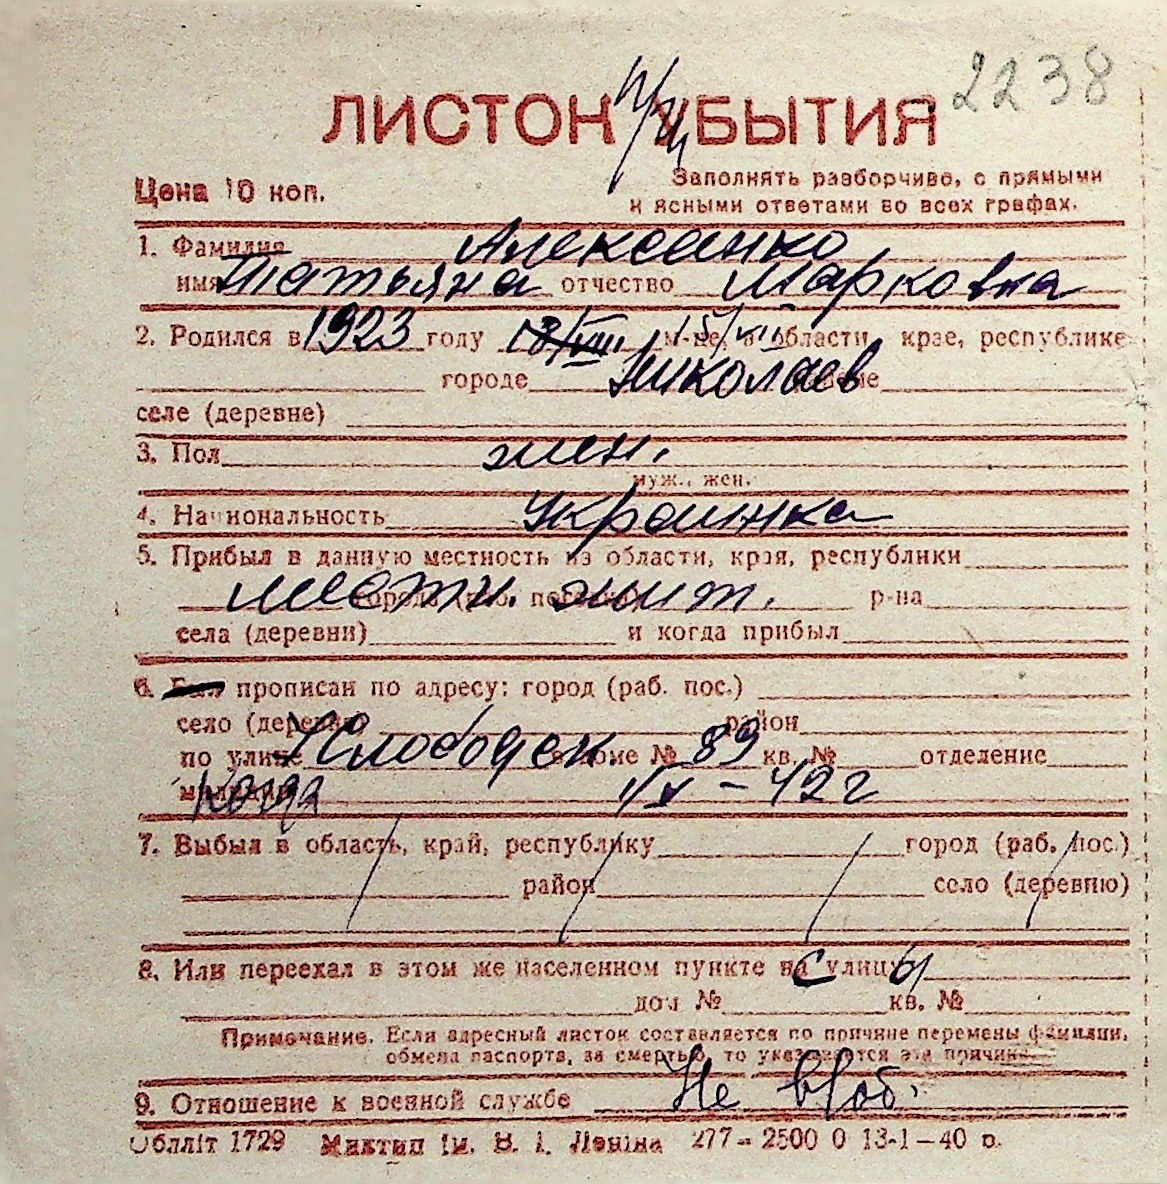 2238
ЛИСТОК УБЫТИЯ
Цена 10 коп.
Заполнять разборчиво, с прямыми
и ясными ответами во всех графах.
1. Фамилия Алексеенко
имя Татьяна отчество Марковна
2. Родился в 1923 году 18/VIII 15/VII м-це, в области, крае, республике
городе Николаев
селе (деревне)
3. Пол жен.
муж., жен.
4. Национальность Украинка
5. Прибыл в данную местность из области, края, республики
местн. жит. города (раб. р-на
села (деревни) и когда прибыл
6. Был прописан по адресу: город (раб. пос.)
село (деревня) район
по улице Слободск доме № 89 кв. № отделение
милиции когда 1/IV – 42 г
7. Выбыл в область, край, республику город (раб. пос.)
район село (деревню)
8. Или переехал в этом же населенном пункте на улицу
дом № кв. №
Примечание. Если адресный листок составляется по причине перемены фамилии,
обмена паспорта, за смертью, то указывается эта причина.
9. Отношение к военной службе Не в/об.
Облліт 1729 Миктип ім. В. І. Леніна 277 – 2500 0 13-1–40 р.